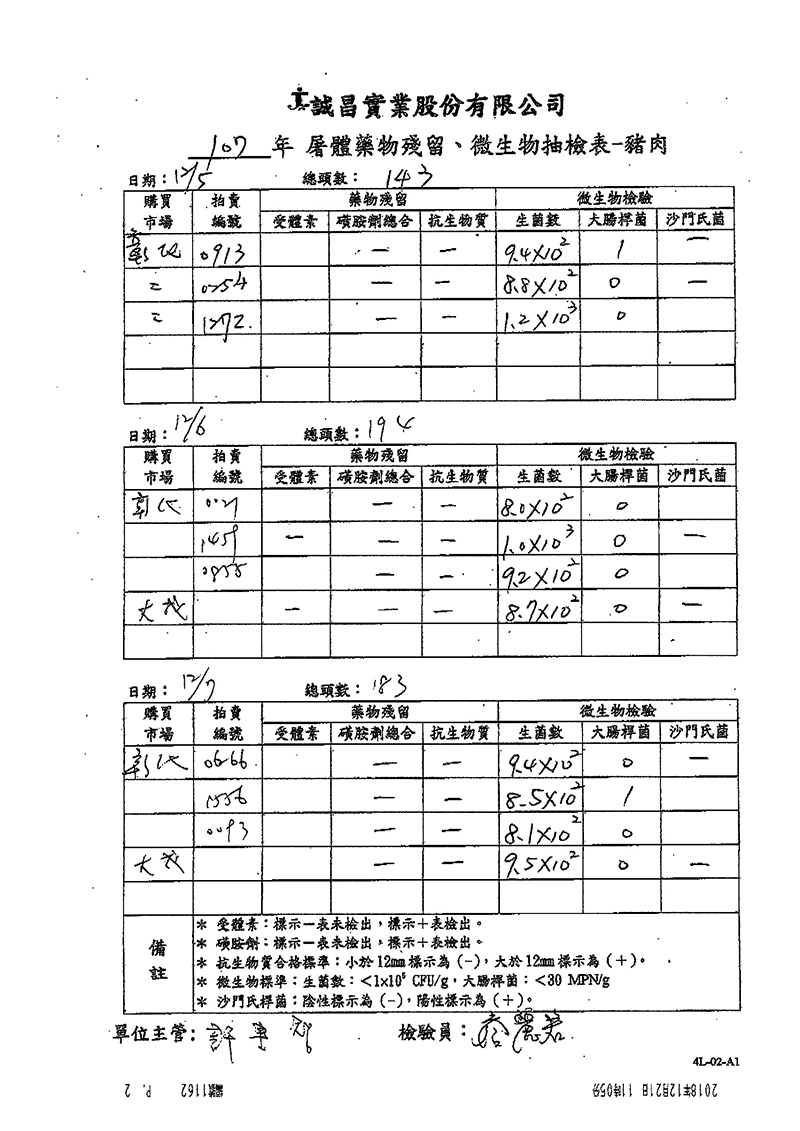 誠昌實業股份有限公司
107 年 屠體藥物殘留、微生物抽檢表-豬肉
日期：12/5 總頭數：143
購買市場 拍賣編號 藥物殘留 微生物檢驗
受體素 磺胺劑總合 抗生物質 生菌數 大腸桿菌 沙門氏菌
彰化 0913 — — 9.4×10² 1 —
〃 0254 — — 8.8×10² 0 —
〃 1272 — — 1.2×10³ 0
日期：12/6 總頭數：194
購買市場 拍賣編號 藥物殘留 微生物檢驗
受體素 磺胺劑總合 抗生物質 生菌數 大腸桿菌 沙門氏菌
彰化 0021 — — 8.0×10² 0
1459 — — — 1.0×10³ 0 —
0855 — — 9.2×10² 0
大成 — — — 8.7×10² 0 —
日期：12/7 總頭數：183
購買市場 拍賣編號 藥物殘留 微生物檢驗
受體素 磺胺劑總合 抗生物質 生菌數 大腸桿菌 沙門氏菌
彰化 0666 — — 9.4×10² 0 —
1536 — — 8.5×10² 1
0093 — — 8.1×10² 0
大成 — — 9.5×10² 0 —
備註
＊ 受體素：標示－表未檢出，標示＋表檢出。
＊ 磺胺劑：標示－表未檢出，標示＋表檢出。
＊ 抗生物質合格標準：小於12mm標示為（－），大於12mm標示為（＋）。
＊ 微生物標準：生菌數：<1x10⁶ CFU/g，大腸桿菌：<30 MPN/g
＊ 沙門氏桿菌：陰性標示為（－），陽性標示為（＋）。
單位主管： 檢驗員：
4L-02-A1
2018年12月21日 11時05分 編號1162 P. 2